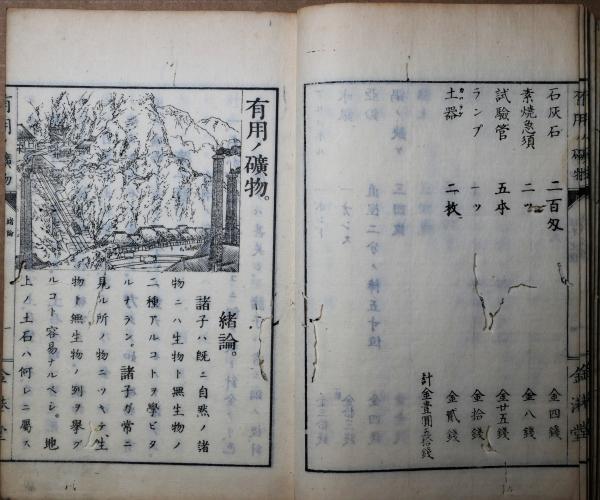 石灰石 二百匁 金四錢
素焼急須 二ツ 金八錢
試驗管 五本 金廿五錢
ランプ 一ツ 金拾錢
土器 二枚 金貳錢
有用ノ礦物
有用ノ礦物。
緒論。
諸子ハ既ニ自然ノ諸
物ニハ生物ト無生物ノ
二種アルコトヲ學ビタ
ルナラン。諸子ガ常ニ
見ル所ノ物ニツキテ生
物ト無生物ノ列ヲ擧グ
ルコト容易ナルベシ。地
上ノ土石ハ何レニ屬ス
有用ノ礦物 緒論 一